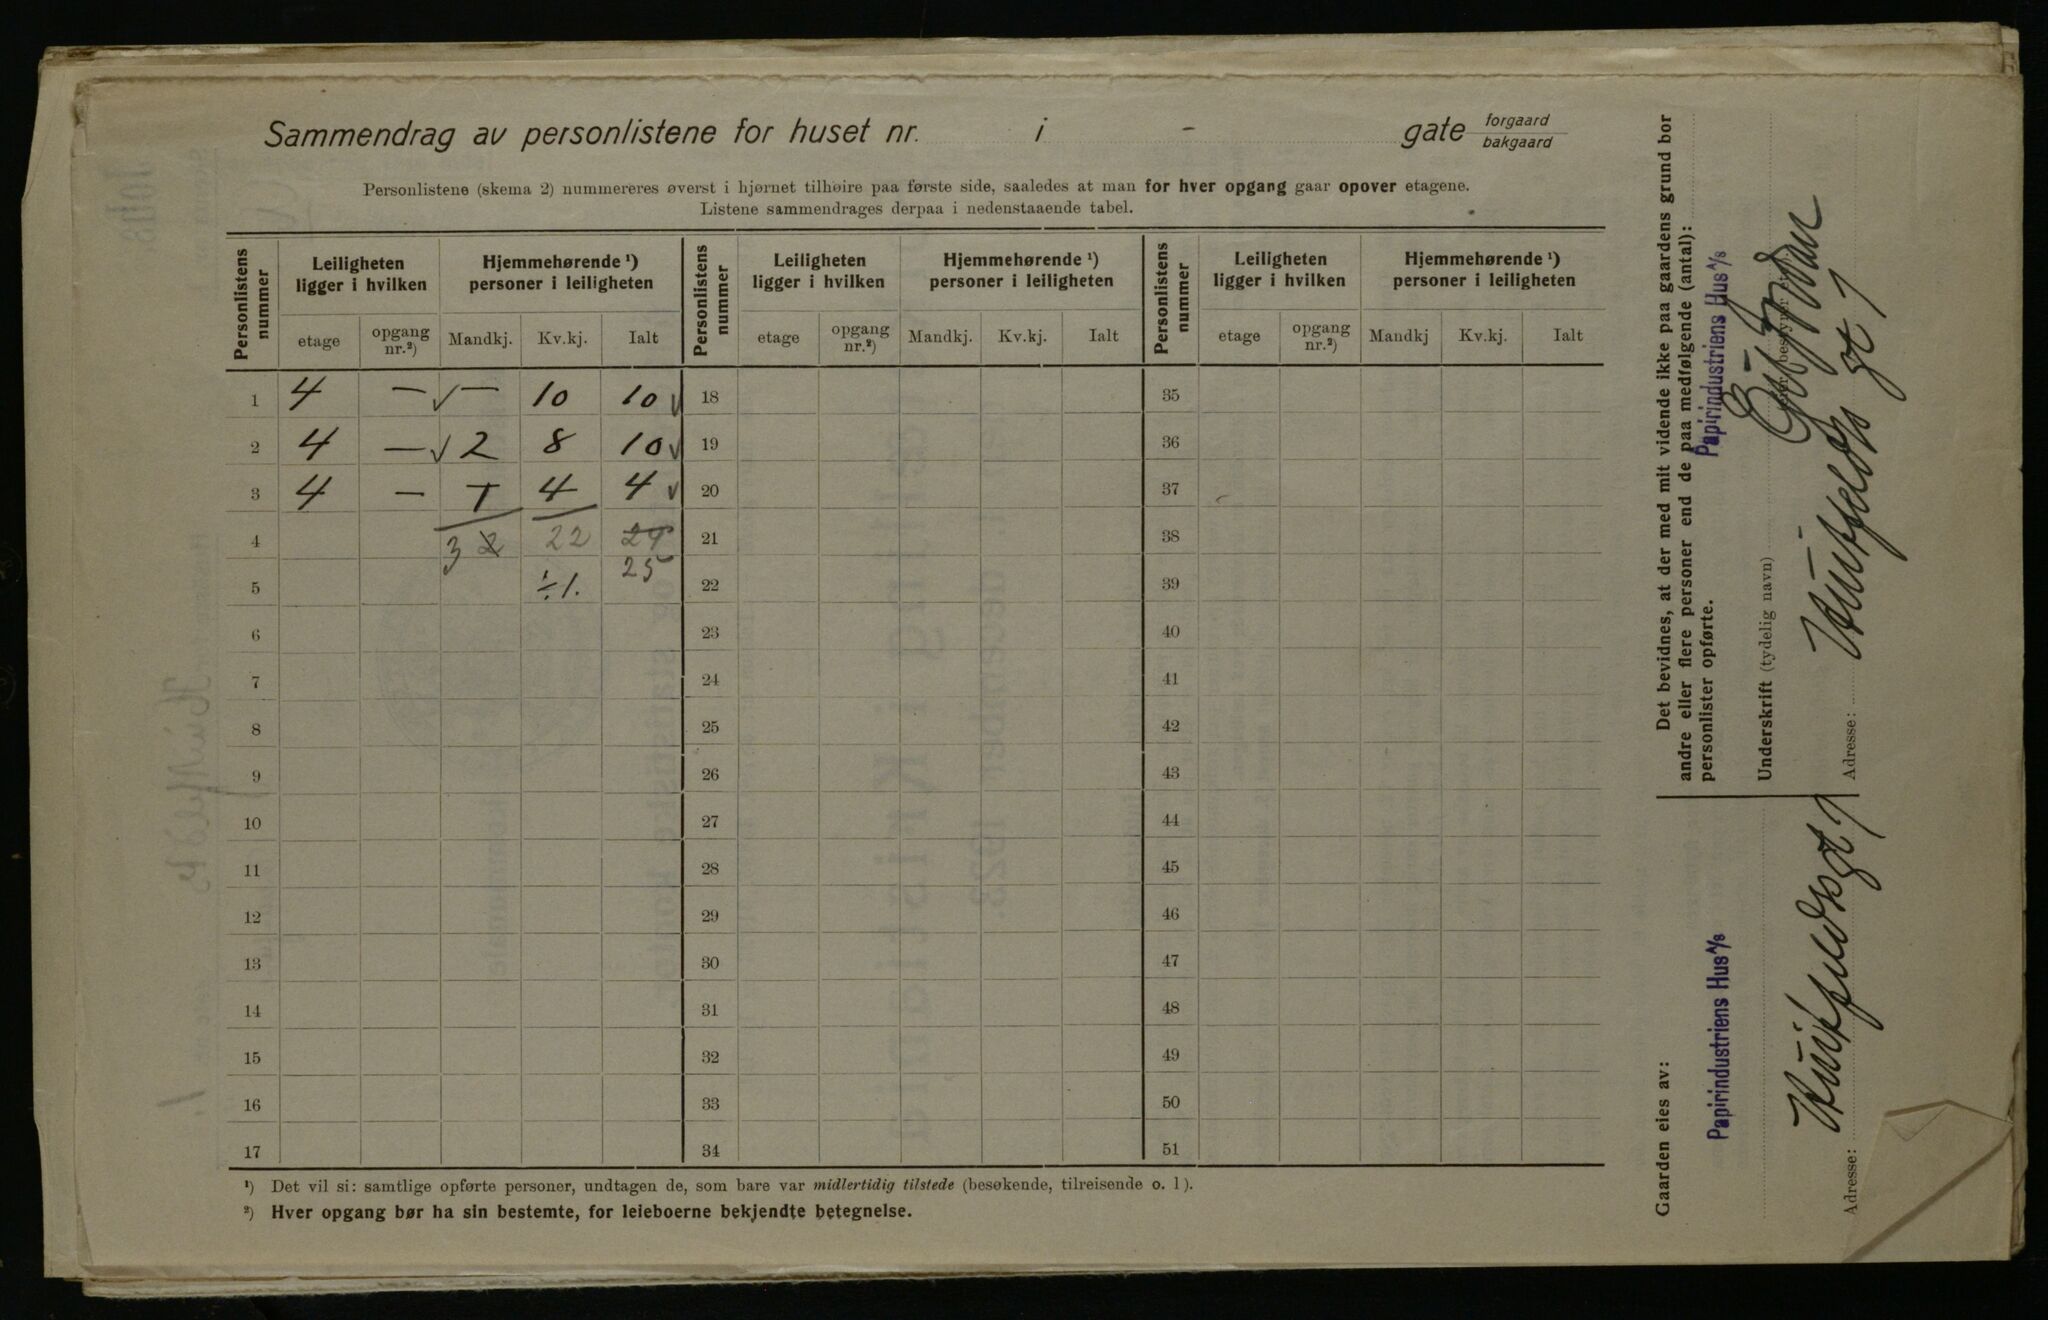 Sammendrag av personlistene for huset nr. i - gate forgaard bakgaard
Personlistene (skema 2) nummereres øverst i hjørnet tilhøire paa første side, saaledes at man for hver opgang gaar opover etagene.
Listene sammendrages derpaa i nedenstaaende tabel.
Personlistens nummer
Leiligheten ligger i hvilken
Hjemmehørende ¹) personer i leiligheten
Personlistens nummer
Leiligheten ligger i hvilken
Hjemmehørende ¹) personer i leiligheten
Personlistens nummer
Leiligheten ligger i hvilken
Hjemmehørende ¹) personer i leiligheten
etage opgang nr.²) Mandkj. Kv.kj. Ialt etage opgang nr.²) Mandkj. Kv.kj. Ialt etage opgang nr.²) Mandkj Kv.kj. Ialt
1 4 — √ — 10 10 √ 18 35
2 4 — √ 2 8 10 √ 19 36
3 4 — 1 4 4 √ 20 37
4 3 2 22 24 21 38
5 ÷1. 25 22 39
6 23 40
7 24 41
8 25 42
9 26 43
10 27 44
11 28 45
12 29 46
13 30 47
14 31 48
15 32 49
16 33 50
17 34 51
¹) Det vil si: samtlige opførte personer, undtagen de, som bare var midlertidig tilstede (besøkende, tilreisende o. l).
²) Hver opgang bør ha sin bestemte, for leieboerne bekjendte betegnelse.
Det bevidnes, at der med mit vidende ikke paa gaardens grund bor
andre eller flere personer end de paa medfølgende (antal):
personlister opførte.
Papirindustriens Hus A/s
Underskrift (tydelig navn)
Adresse: Huitfeldts gt 1
Gaarden eies av:
Papirindustriens Hus A/s
Adresse: Huitfeldtsgt 1